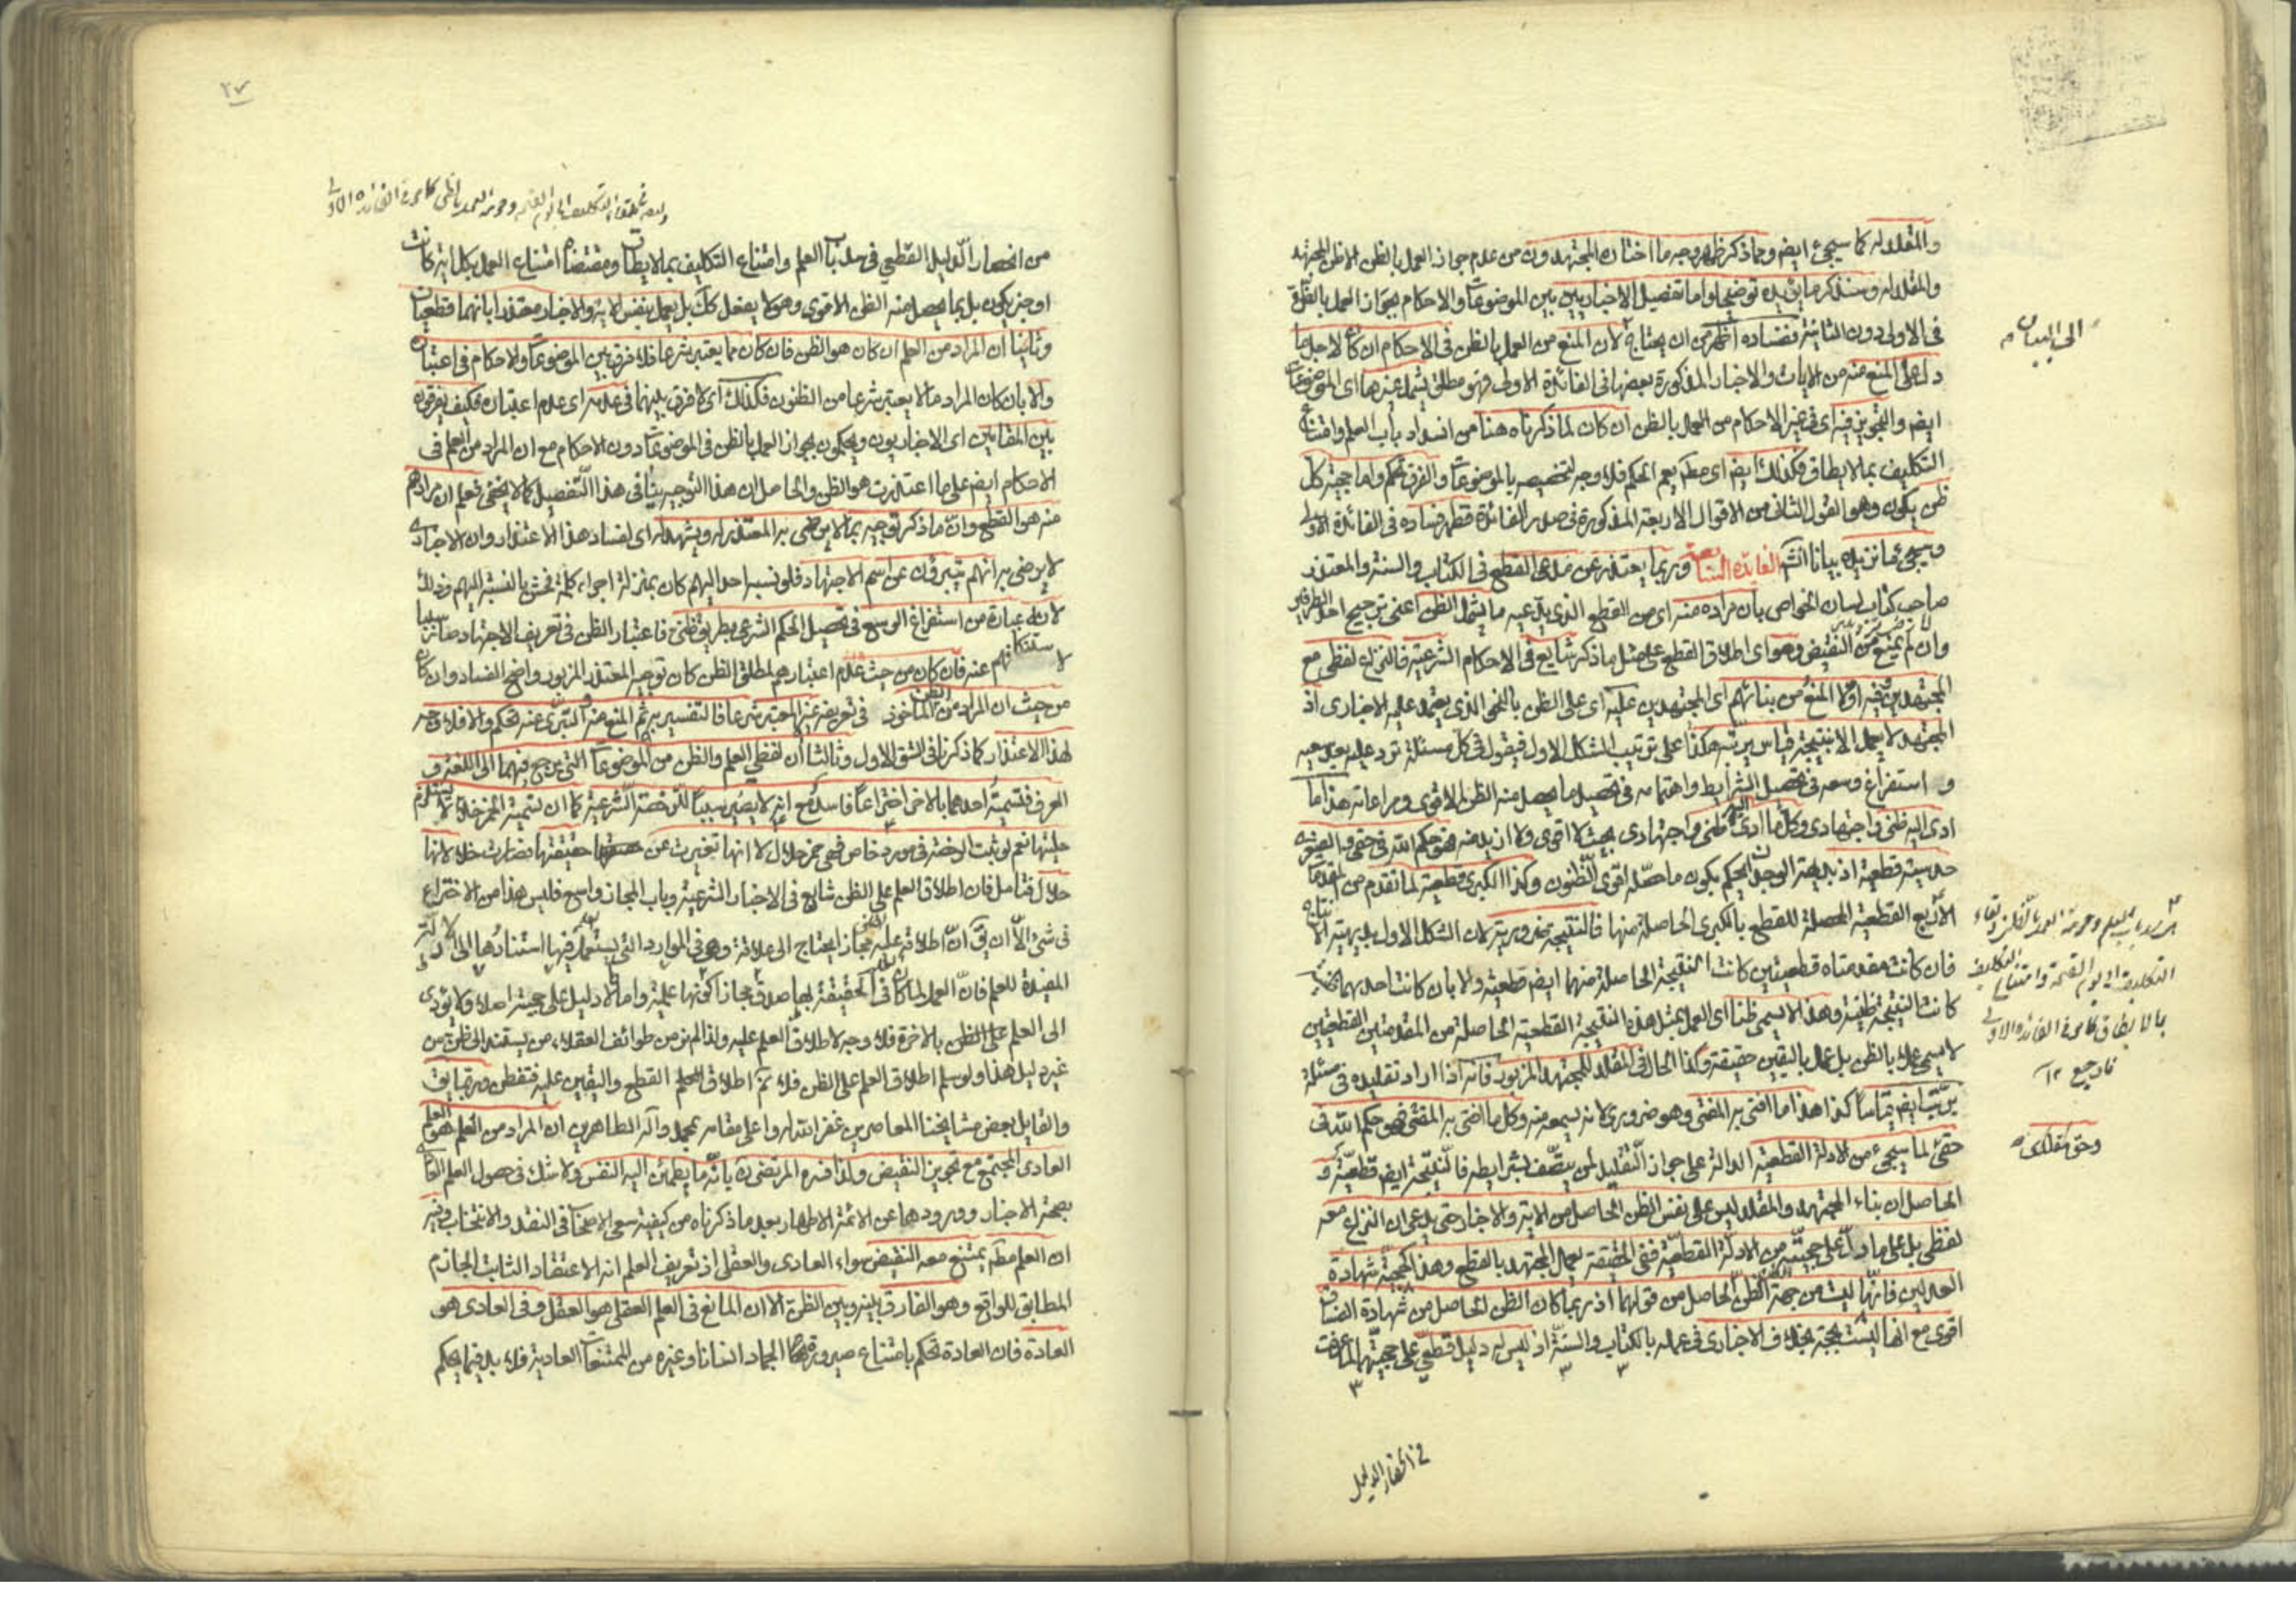 والمقلد له كما سيجئ ايضا ومما ذكر ظهر وجه ما اختاره المجتهدون من عدم جواز العمل بالظن الا ظن المجتهد
والمقلد له وسنذكر ما يزيده توضيحا واما تفصيل الاخباريين بين الموضوعات والاحكام بجواز العمل بالظن
في الاولى دون الثانية ففساده اظهر من ان يحتاج لان المنع من العمل بالظن في الاحكام ان كان لاجل ما
الى البيان
دل على المنع منه من الايات والاخبار المذكورة بعضها في الفائدة الاولى فهو مطلق يشمل غيرها اى الموضوعات
ايضا والتجويز فيه اى في غير الاحكام من العمل بالظن ان كان لما ذكرناه هنا من انسداد باب العلم وامتناع
التكليف بما لايطاق فكذلك ايضا اى يعم الحكم فلا وجه لتخصيصه بالموضوعات والفرق تحكم واما حجية كل
ظن يكون وهو القول الثانى من الاقوال الاربعة المذكورة في صدر الفائدة فظهر فساده في الفائدة الاولى
وسيجئ ما نزيده بيانا انشا الفائدة وربما يعتذر عن مدعى القطع في الكتاب والسنة والمعتذر
صاحب كتاب لسان الخواص بان مراده منه اى من القطع الذى يدعيه ما يشمل الظن اعنى ترجيح احد الطرفين
وان لم يمنع من النقيض وهو اى اطلاق القطع على مثل ما ذكر شايع في الاحكام الشرعية فالنزاع لفظى مع
المجتهدين فيه اولا المنع من بنائهم اى المجتهدين عليه اى على الظن بالنحو الذى يعتمد عليه الاخبارى اذ
المجتهد لا يعمل الا بنتيجة قياس يرتبه هكذا على ترتيب الشكل الاول فيقول في كل مسئلة ترد عليه بعد سعيه
و استفراغ وسعه في تحصيل الشرايط واهتمامه في تحصيل ما يحصل منه الظن الاقوى ومراعاته هذا ما
ادى اليه ظنى واجتهادى وكل ما ادى اليه ظنى واجتهادى بحيث لا اقوى ولا ازيد منه فهو حكم الله في حقى والصغرى
قطعية اذ بديهة الوجدان يحكم بكون ما حصله اقوى الظنون وكذا الكبرى قطعية لما تقدم من المقدمات
الاربع القطعية المحصلة للقطع بالكبرى الحاصلة منها فالنتيجة ضرورية لان الشكل الاول بديهية الانتاج
فان كانت مقدمتاه قطعيتين كانت النتيجة الحاصلة منهما ايضا قطعية والا بان كانت احديهما ظنية
كانت النتيجة ظنية وهذا لا يسمى ظنا اى العمل بمثل هذه النتيجة القطعية الحاصلة من المقدمتين القطعيتين
لا يسمى عملا بالظن بل عمل باليقين حقيقة وكذا الحال في المقلد للمجتهد المزبور فانه اذا اراد تقليده في مسئلة
يرتب ايضا قياسا كذا هذا ما افتى به المفتى وهو ضرورى لانه يسمعه منه وكل ما افتى به المفتى فهو حكم الله في
وحق مقلدى
حقى لما سيجئ من الادلة القطعية الدالة على جواز التقليد لمن يتصف بشرايطه فالنتيجة ايضا قطعية و
الحاصل ان بناء المجتهد والمقلد ليس على نفس الظن الحاصل من الاية والاخبار حتى يدعى ان النزاع معه
لفظى بل على ما دل على حجيته من الادلة القطعية ففى الحقيقة يعمل المجتهد بالقطع وهذا كحجية شهادة
العدلين فانها ليست من جهة الظن الحاصل من قولهما اذ ربما كان الظن الحاصل من شهادة الفساق
اقوى مع انها ليست بحجة بخلاف الاخبارى في عمله بالكتاب والسنة اذ ليس له دليل قطعى على حجيتهما لما عرفت
في انحصار الدليل
٢٧
من انحصار الدليل القطعي في سد باب العلم وامتناع التكليف بما لايطاق ومقتضاه امتناع العمل بكل اية كانت
او خبر يكون بل بما يحصل منه الظن الاقوى وهو لا يفعل كك بل يعمل بنفس الاية والاخبار معتذرا بانهما قطعيان
وثانيا ان المراد من العلم ان كان هو الظن فان كان مما يعتبر شرعا فلا فرق بين الموضوعات والاحكام في اعتباره
والا بان كان المراد ما لا يعتبر شرعا من الظنون فكذلك اى لا فرق بينهما في عدمه اى عدم اعتباره فكيف يفرقون
بين المقامين اى الاخباريون ويحكمون بجواز العمل بالظن في الموضوعات دون الاحكام مع ان المراد من العلم في
الاحكام ايضا على ما اعتذرت هو الظن والحاصل ان هذا التوجيه ينافى هذا التفصيل كما لا يخفى فعلم ان مرادهم
منه هو القطع وان ما ذكر توجيه بما لا يرضى به المعتذر له ويشهد له اى لفساد هذا الاعتذار وان الاخبارى
لا يرضى به انهم يتبرؤن عن اسم الاجتهاد فلو نسبه احد اليهم كان بمنزلة اجراء كلمة فحش بالنسبة اليهم وذلك
لانه عبارة من استفراغ الوسع في تحصيل الحكم الشرعى بطريق ظنى فاعتبار الظن في تعريف الاجتهاد صار سببا
لاستنكافهم عنه فان كان من حيث عدم اعتبارهم لمطلق الظن كان توجيه المعتذر المزبور واضح الفساد وان كان
من حيث ان المراد من الظن الماخوذ في تعريفه غير المعتبر شرعا فالتفسير به ثم المنع منه والتبرى عنه تحكم والا فلا وجه
لهذا الاعتذار كما ذكرنا في الشق الاول وثالثا ان لفظى العلم والظن من الموضوعات التى يرجع فيهما الى اللغة و
العرف فتسمية احدهما بالاخر اختراعا فاسد مع انه لا يصير سببا للرخصة الشرعية كما ان تسمية الخمر خلا لا يستلزم
حليتها نعم لو ثبت الرخصة في مورد خاص فهى خمر حلال لا انها تغيرت عن حقيقتها فصارت خلا لانها
حلال فتامل فان اطلاق العلم على الظن شايع في الاخبار الشرعية وباب المجاز واسع فليس هذا من الاختراع
في شئ الا ان يق ان اطلاقه عليه مجاز يحتاج الى علاقة وهى في الموارد التى يستعمل فيها استنادها الى الادلة
المفيدة للعلم فان العمل لما كان في الحقيقة بها صدق مجازا كونها علمية واما ما لا دليل على حجيته اصلا ولا يؤدى
الى العلم على الظن بالاخرة فلا وجه لاطلاق العلم عليه ولذا لم نر من طوائف العقلاء من يستند الى ظن من
غير دليل هذا ولو سلم اطلاق العلم على الظن فلا نم اطلاق القطع واليقين عليه فتفطن وربما يق
والقايل بعض مشايخنا المعاصرين غفر الله له واعلى مقامه بمحمد وآله الطاهرين ان المراد من العلم هو العلم
العادى المجتمع مع تجويز النقيض ولذا فسره المرتضى ره بانه ما يطمئن اليه النفس ولا شك في حصول العلم العادى
بصحة الاخبار وورودها عن الائمة الاطهار بعد ما ذكرناه من كيفية سعى الاصحاب في النقد والانتخاب وفيه
ان العلم مط يمتنع معه النقيض سواء العادى والعقلى اذ تعريف العلم انه الاعتقاد الثابت الجازم
المطابق للواقع وهو الفارق بينه وبين الظن الا ان المانع في العلم العقلى هو العقل وفى العادى هو
العادة فان العادة تحكم بامتناع صيرورة الجماد انسانا وغيره من الممتنعات العادية فلا بد فيما يحكم